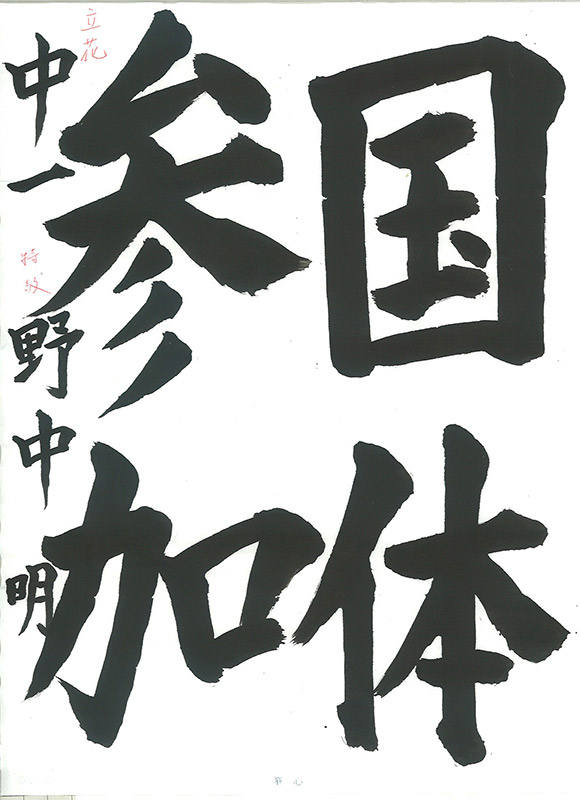 国体
参加
中一 野中 明
立花
特級